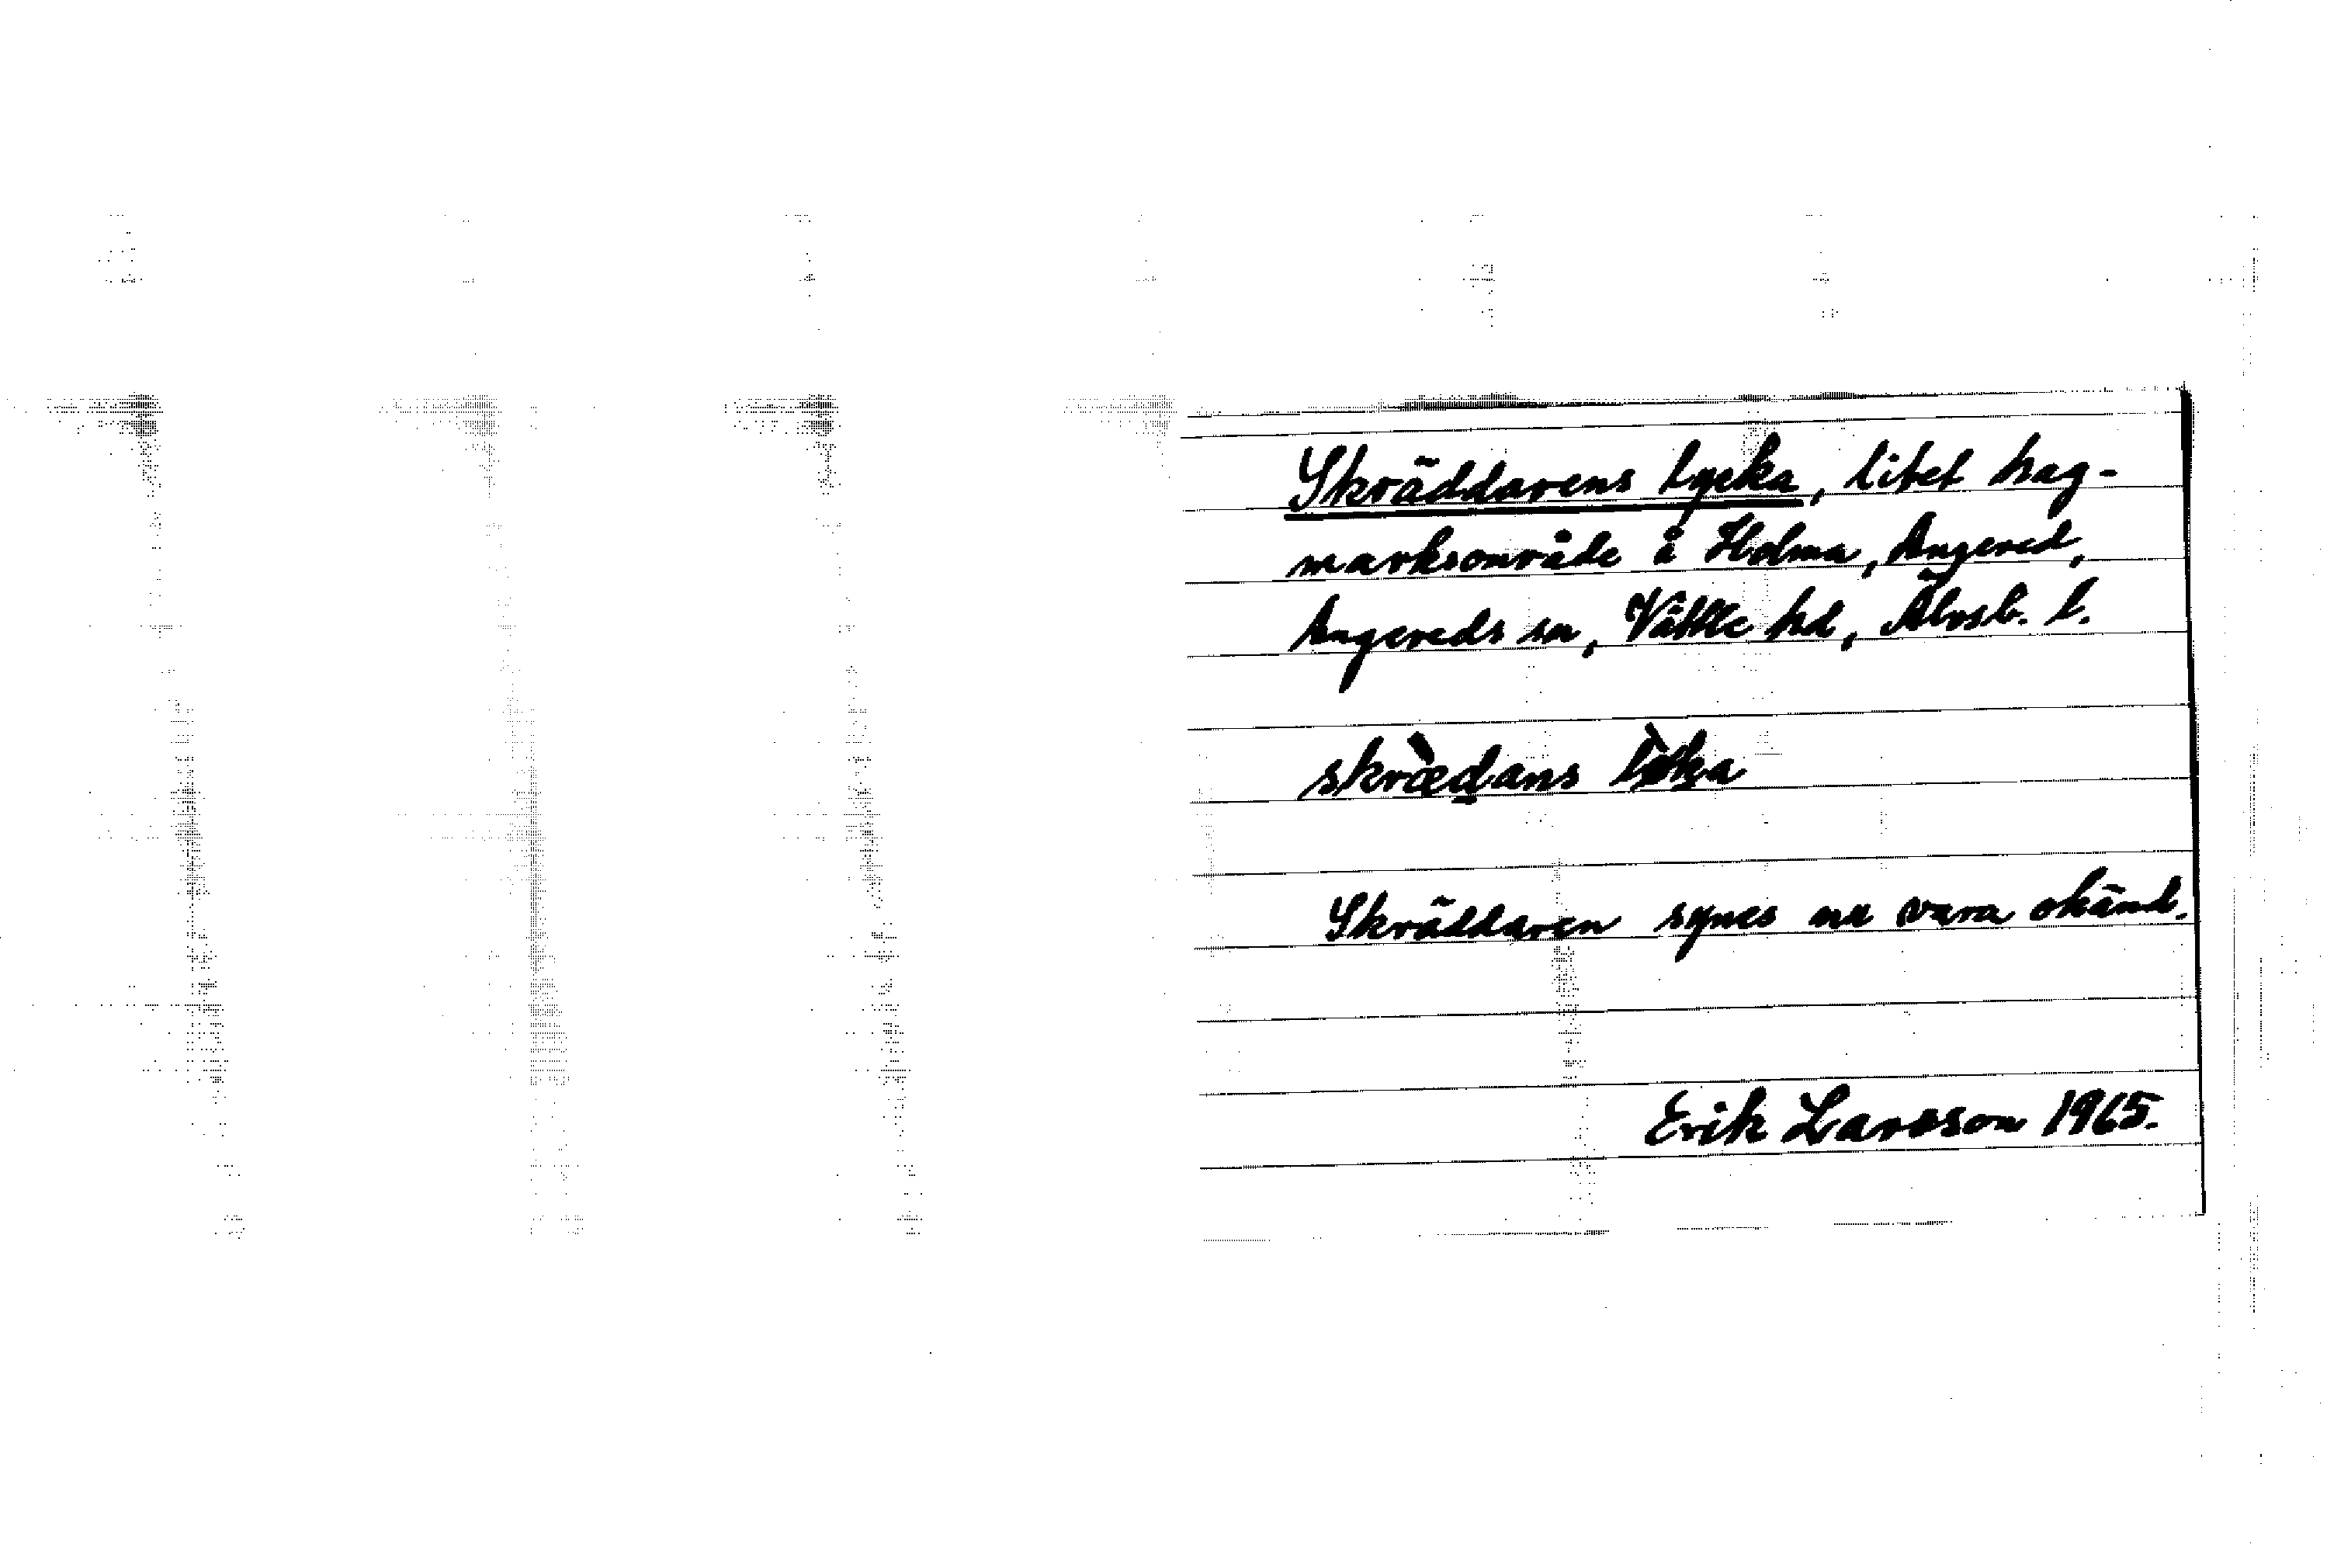 Skräddarens lycka, litet hag-
marksområde å Holma, Angered,
Angereds sn, Vättle hd, Älvsb. l.
skræ̀dans
Skräddaren synes nu vara okänd.
Erik Larsson 1965.